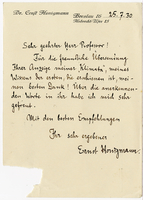 Dr. Ernst Honigmann
Breslau 16
25.7.30
Sehr geehrter Herr Professor!
Für die freundliche Übersendung
Ihrer Anzeige meiner „Klimata“, meines
Wissens der ersten, die erschienen ist, meinen
besten Dank! Über die anerkennenden
Worte in ihr habe ich mich sehr
gefreut.
Mit den besten Empfehlungen
Ihr sehr ergebener
Ernst Honigmann.